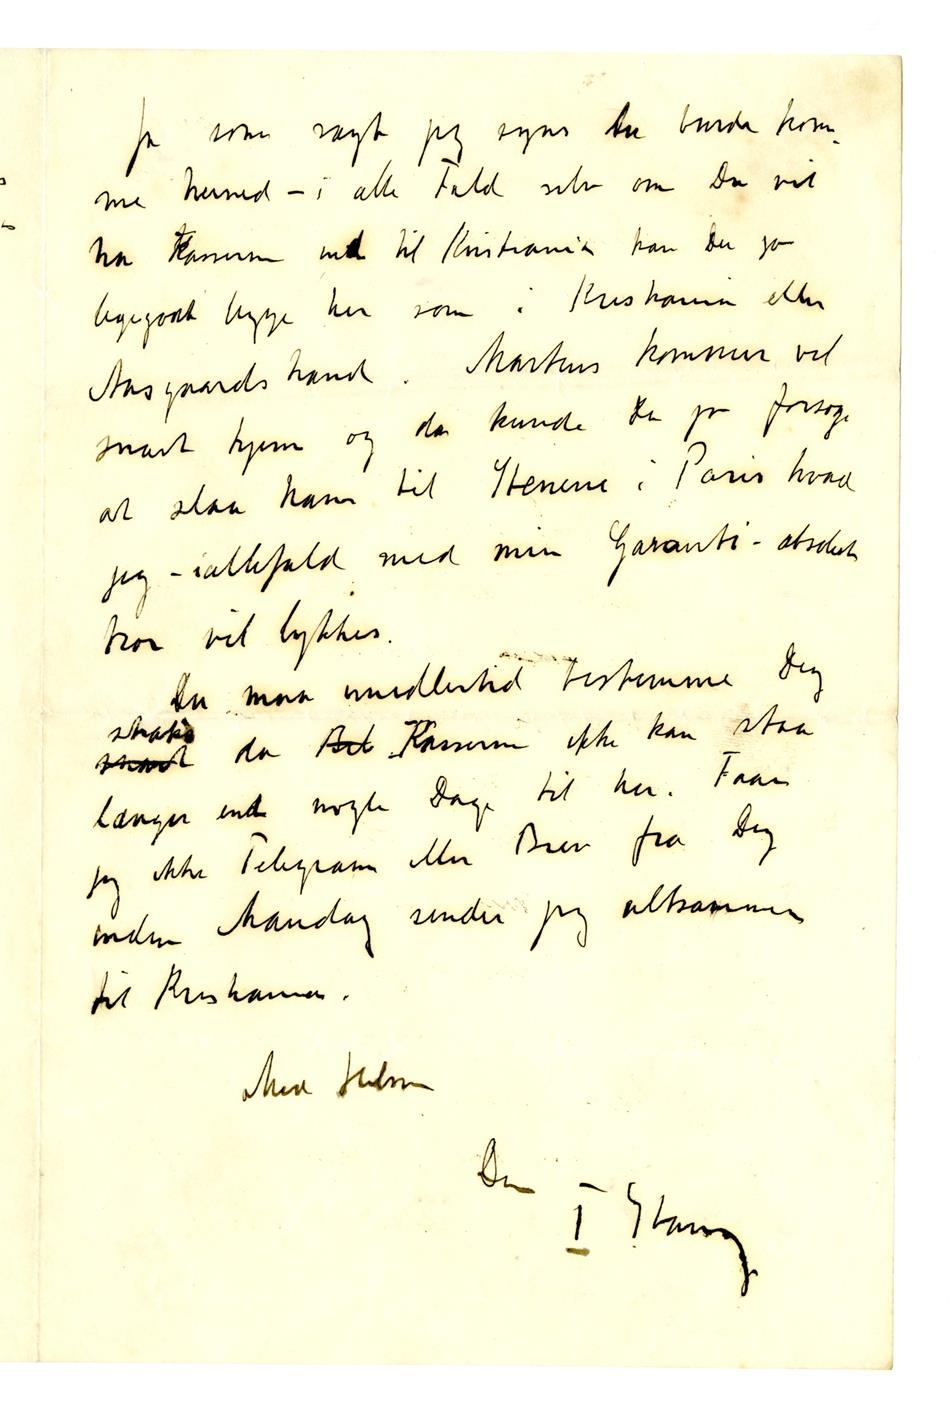 Ja som sagt jeg synes Du burde kom-
me herned – i alle Fald selv om Du vil
ha Kasserne ind til Kristiania kan Du jo
ligegodt ligge her som i Kristiania eller
Aasgaardstrand. Martens kommer vel
snart hjem og da kunde Du jo forsøge
at slaa ham til Stenene i Paris hvad
jeg – iallefald med min Garanti – absolut
tror vil lykkes.
Du maa imidlertid bestemme Dig
straks
snart da Bil Kasserne ikke kan staa
længer end nogle Dage til her. Faar
jeg ikke Telegram eller Brev fra Dig
inden Mandag sender jeg altsammen
til Kristiania.
Med Hilsen
Din
I Stang